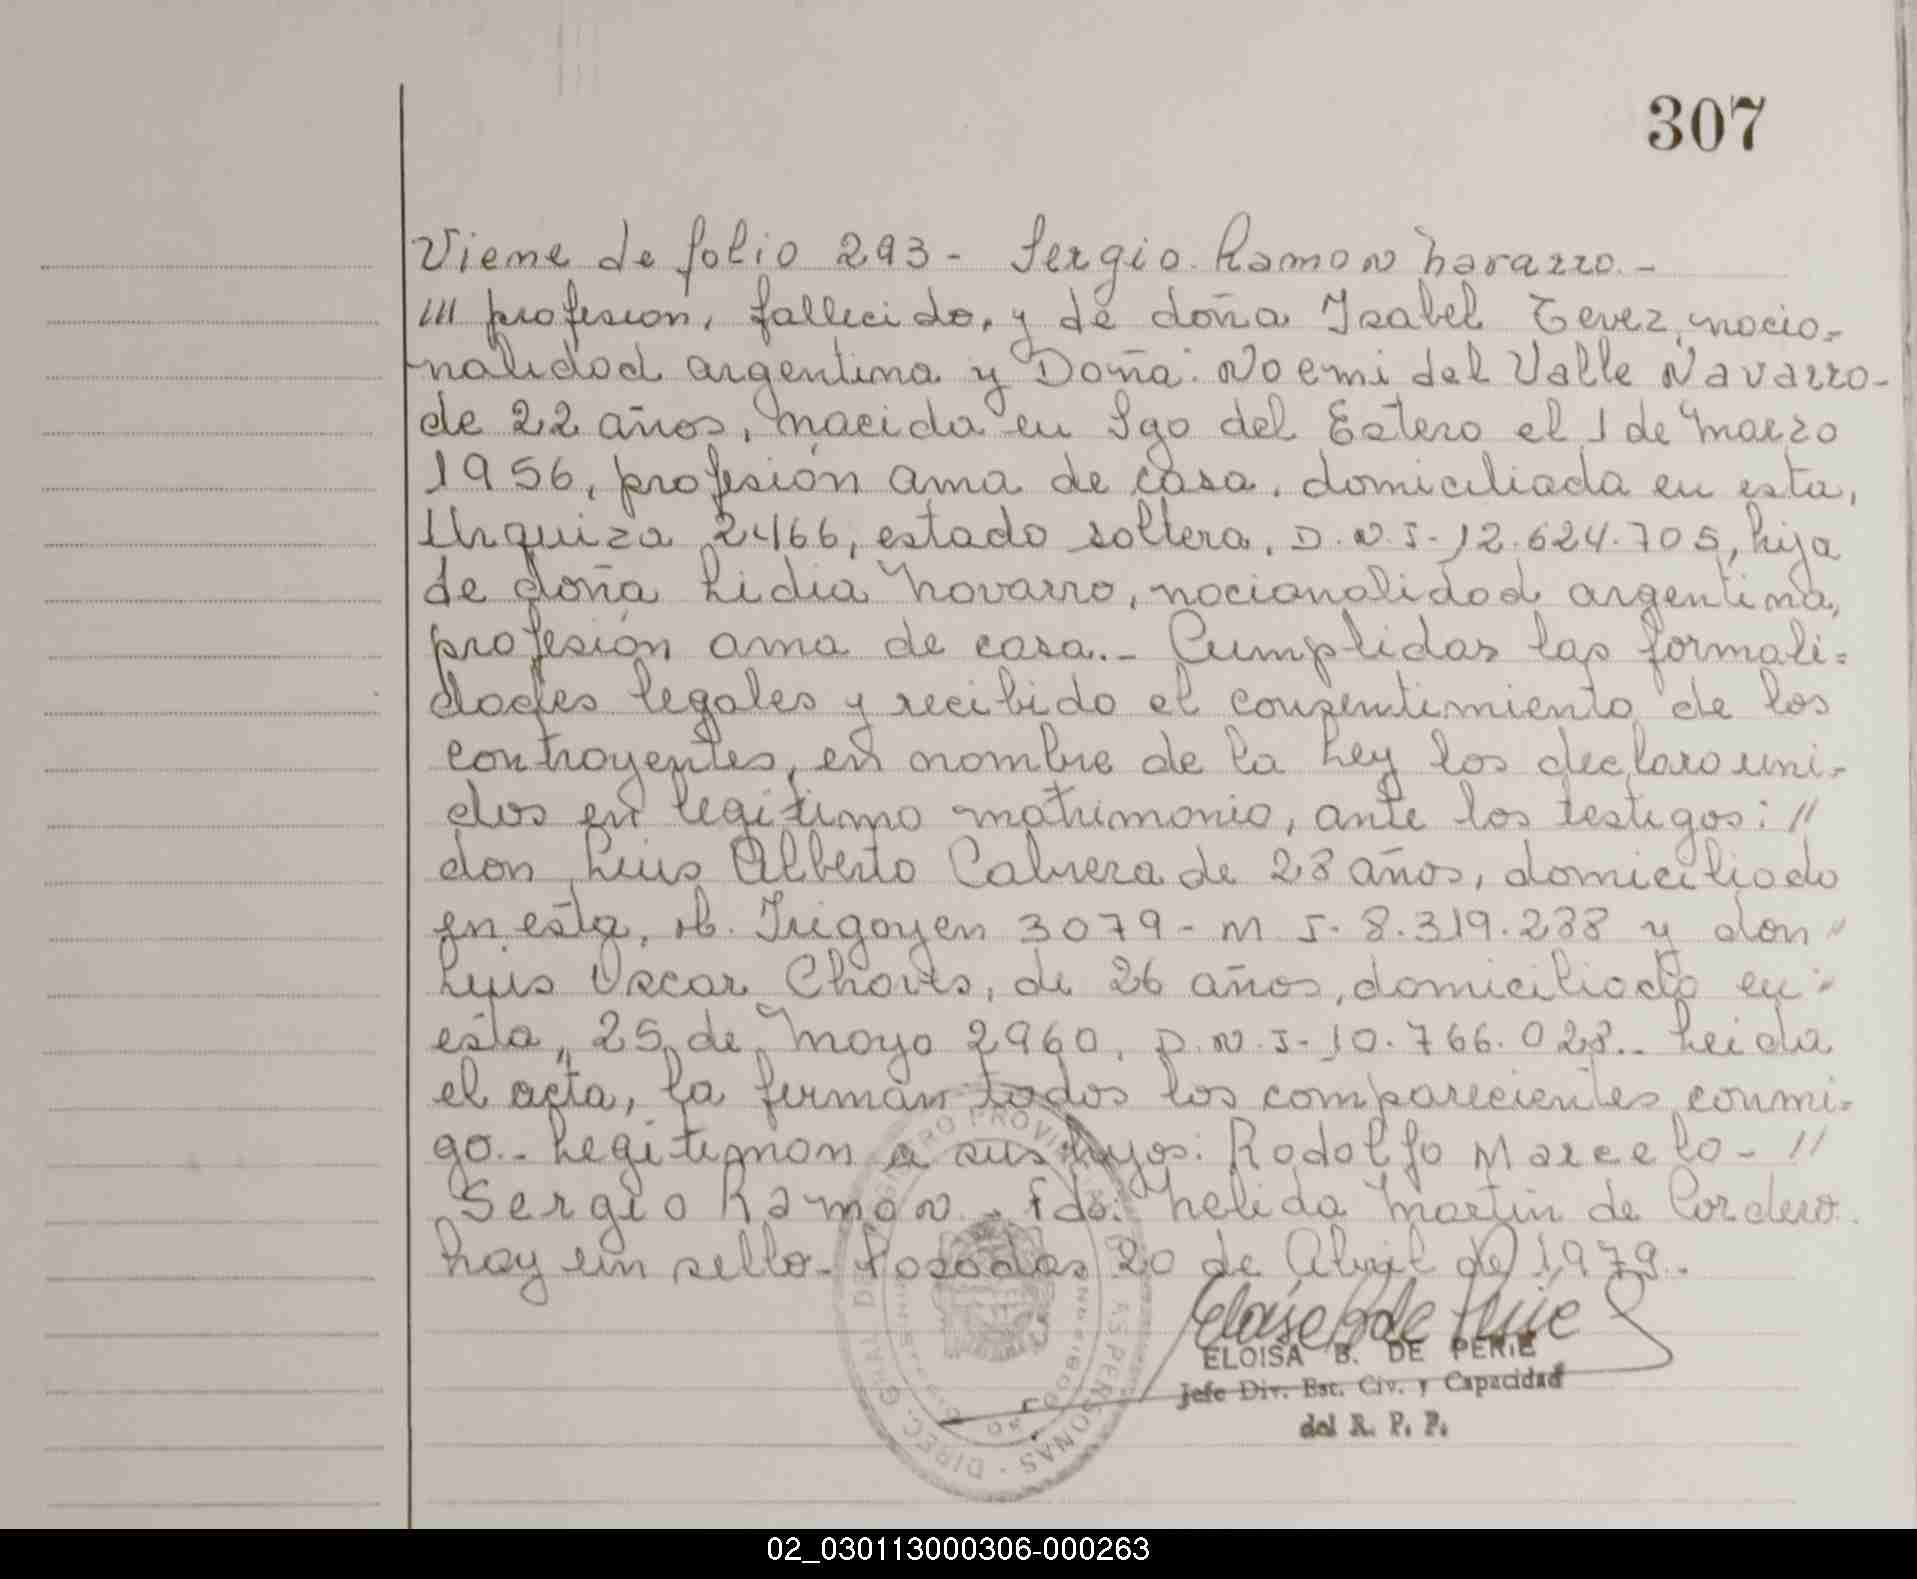 307
Viene de folio 293 - Sergio Ramon Navarro.-
/// profesion, fallecido, y de doña Isabel Tevez, nacio-
nalidad argentina y Doña: Noemi del Valle Navarro-
de 22 años, nacida en Sgo del Estero el 1 de Marzo
1956, profesión ama de casa, domiciliada en esta,
Urquiza 2466, estado soltera, D.N.I- 12.624.705, hija
de doña Lidia Navarro, nacionalidad argentina,
profesión ama de casa.- Cumplidas las formali-
dades legales y recibido el consentimiento de los
contrayentes, en nombre de la Ley los declaro uni-
dos en legítimo matrimonio, ante los testigos: //
don Luis Alberto Cabrera de 28 años, domiciliado
en esta, H. Irigoyen 3079 - M I- 8.319.288 y don //
Luis Oscar Choves, de 26 años, domiciliado en //
esta, 25 de Mayo 2960, D.N.I- 10.766.028.- Leida
el acta, la firman todos los comparecientes conmi-
go.- Legitiman a sus hijos: Rodolfo Marcelo - //
Sergio Ramón.- fdo: Nelida Martin de Cordero.
hay un sello- Posadas 20 de Abril de 1979.-
ELOISA B. DE PERIE
Jefe Div. Est. Civ. y Capacidad
del R. P. P.
02_030113000306-000263